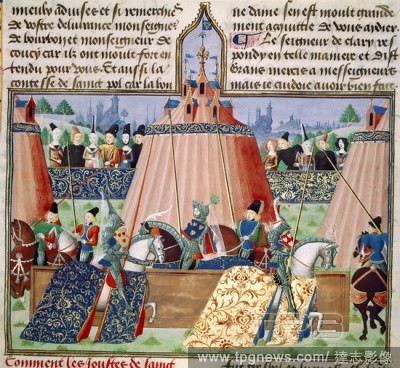 mieulx aduises et si remerchies
de vostre deliurance monseigne
de bourbon et monseigneur de
coucy car ilz ont moult fort en
tendu pour vous Et aussi la
contesse de sainct pol car la bon
ne dame sen est moult grande
ment acquittie de vous aidier
Le seigneur de clary res
pondy en telle maniere et dist
Grans mercis a messeigneurs
mais ie cuidoie auoir bien fait
Comment les Joustes de sainct
www.tpgnews.com / 達志影像